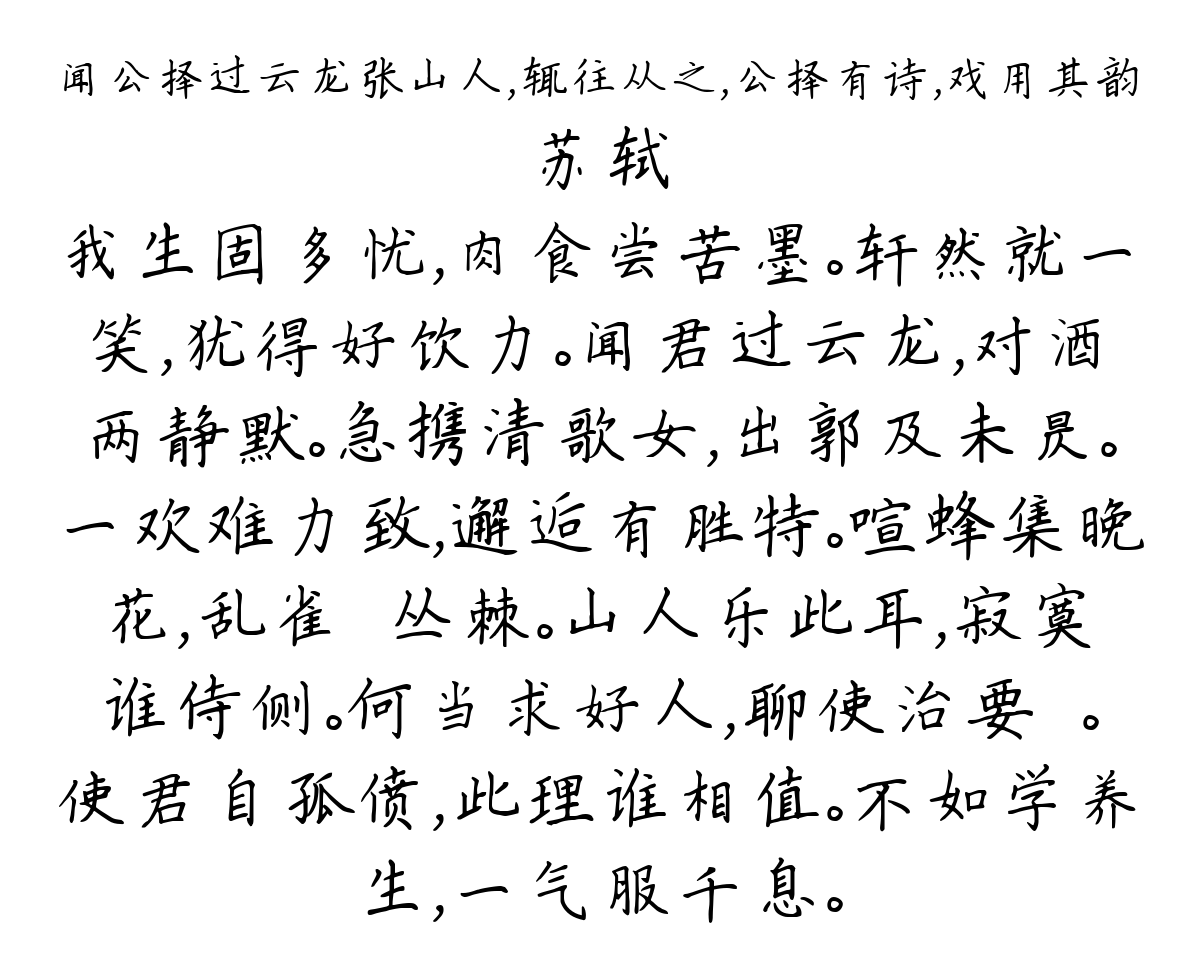 闻公择过云龙张山人,辄往从之,公择有诗,戏用其韵
苏轼
我生固多忧,肉食尝苦墨。轩然就一
笑,犹得好饮力。闻君过云龙,对酒
两静默。急携清歌女,出郭及未昃。
一欢难力致,邂逅有胜特。喧蜂集晚
花,乱雀 丛棘。山人乐此耳,寂寞
谁侍侧。何当求好人,聊使治要 。
使君自孤偾,此理谁相值。不如学养
生,一气服千息。